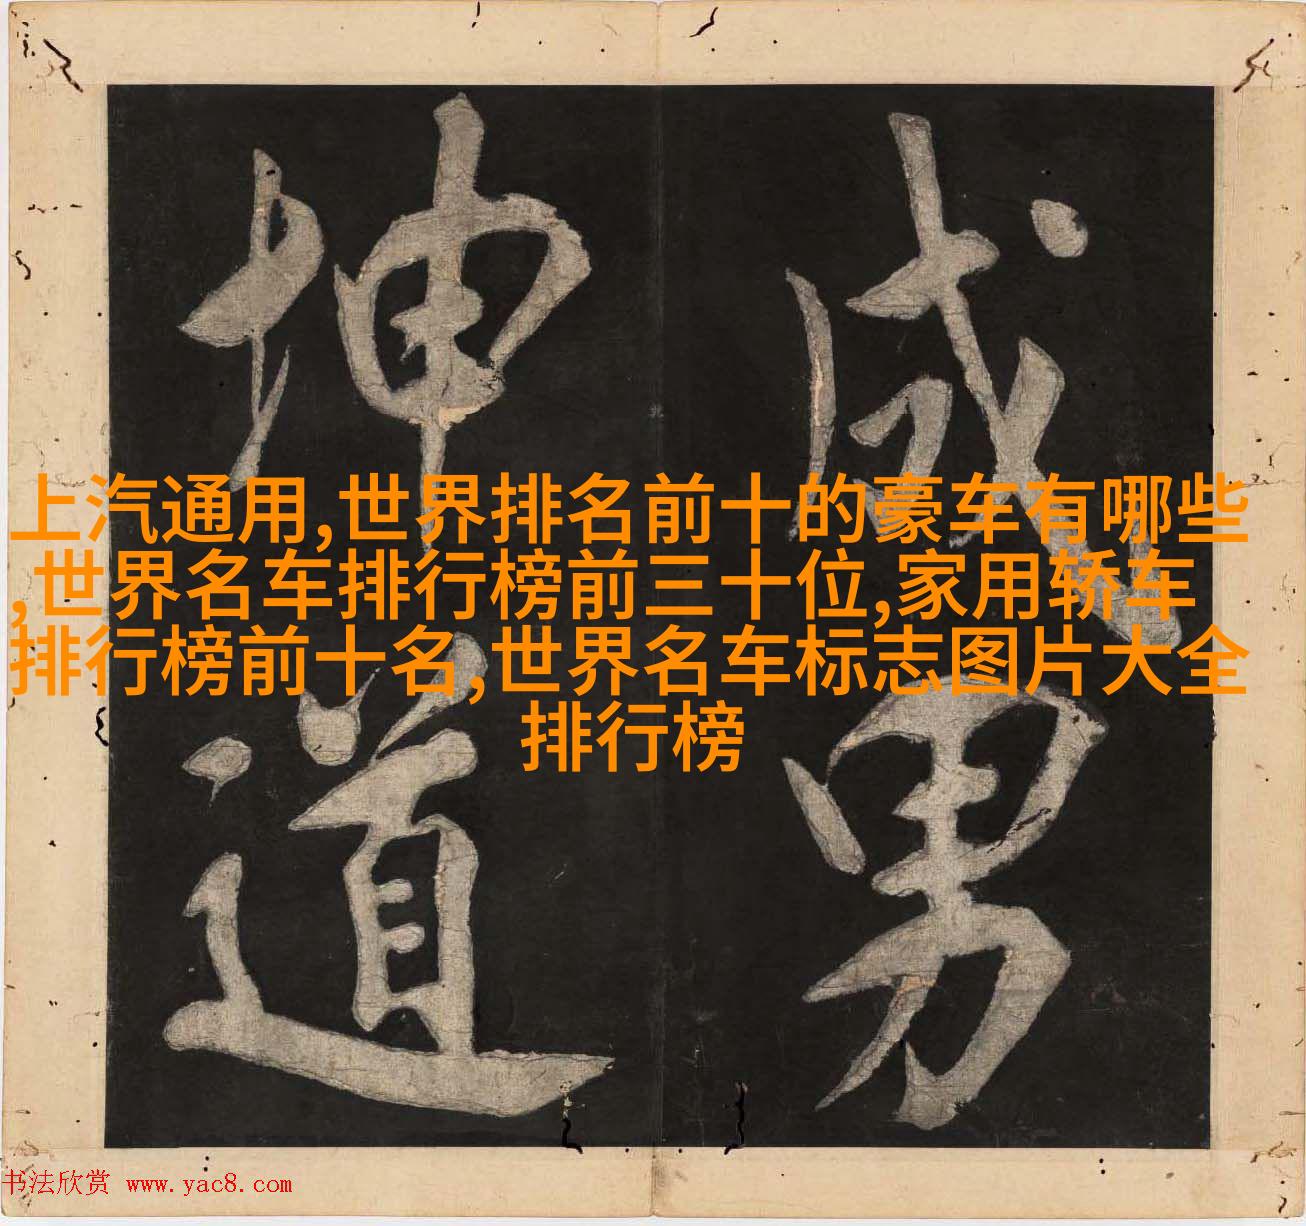 成男
坤道
上汽通用,世界排名前十的豪车有哪些
,世界名车排行榜前三十位,家用轿车
排行榜前十名,世界名车标志图片大全
排行榜
书法欣赏 www.yac8.com